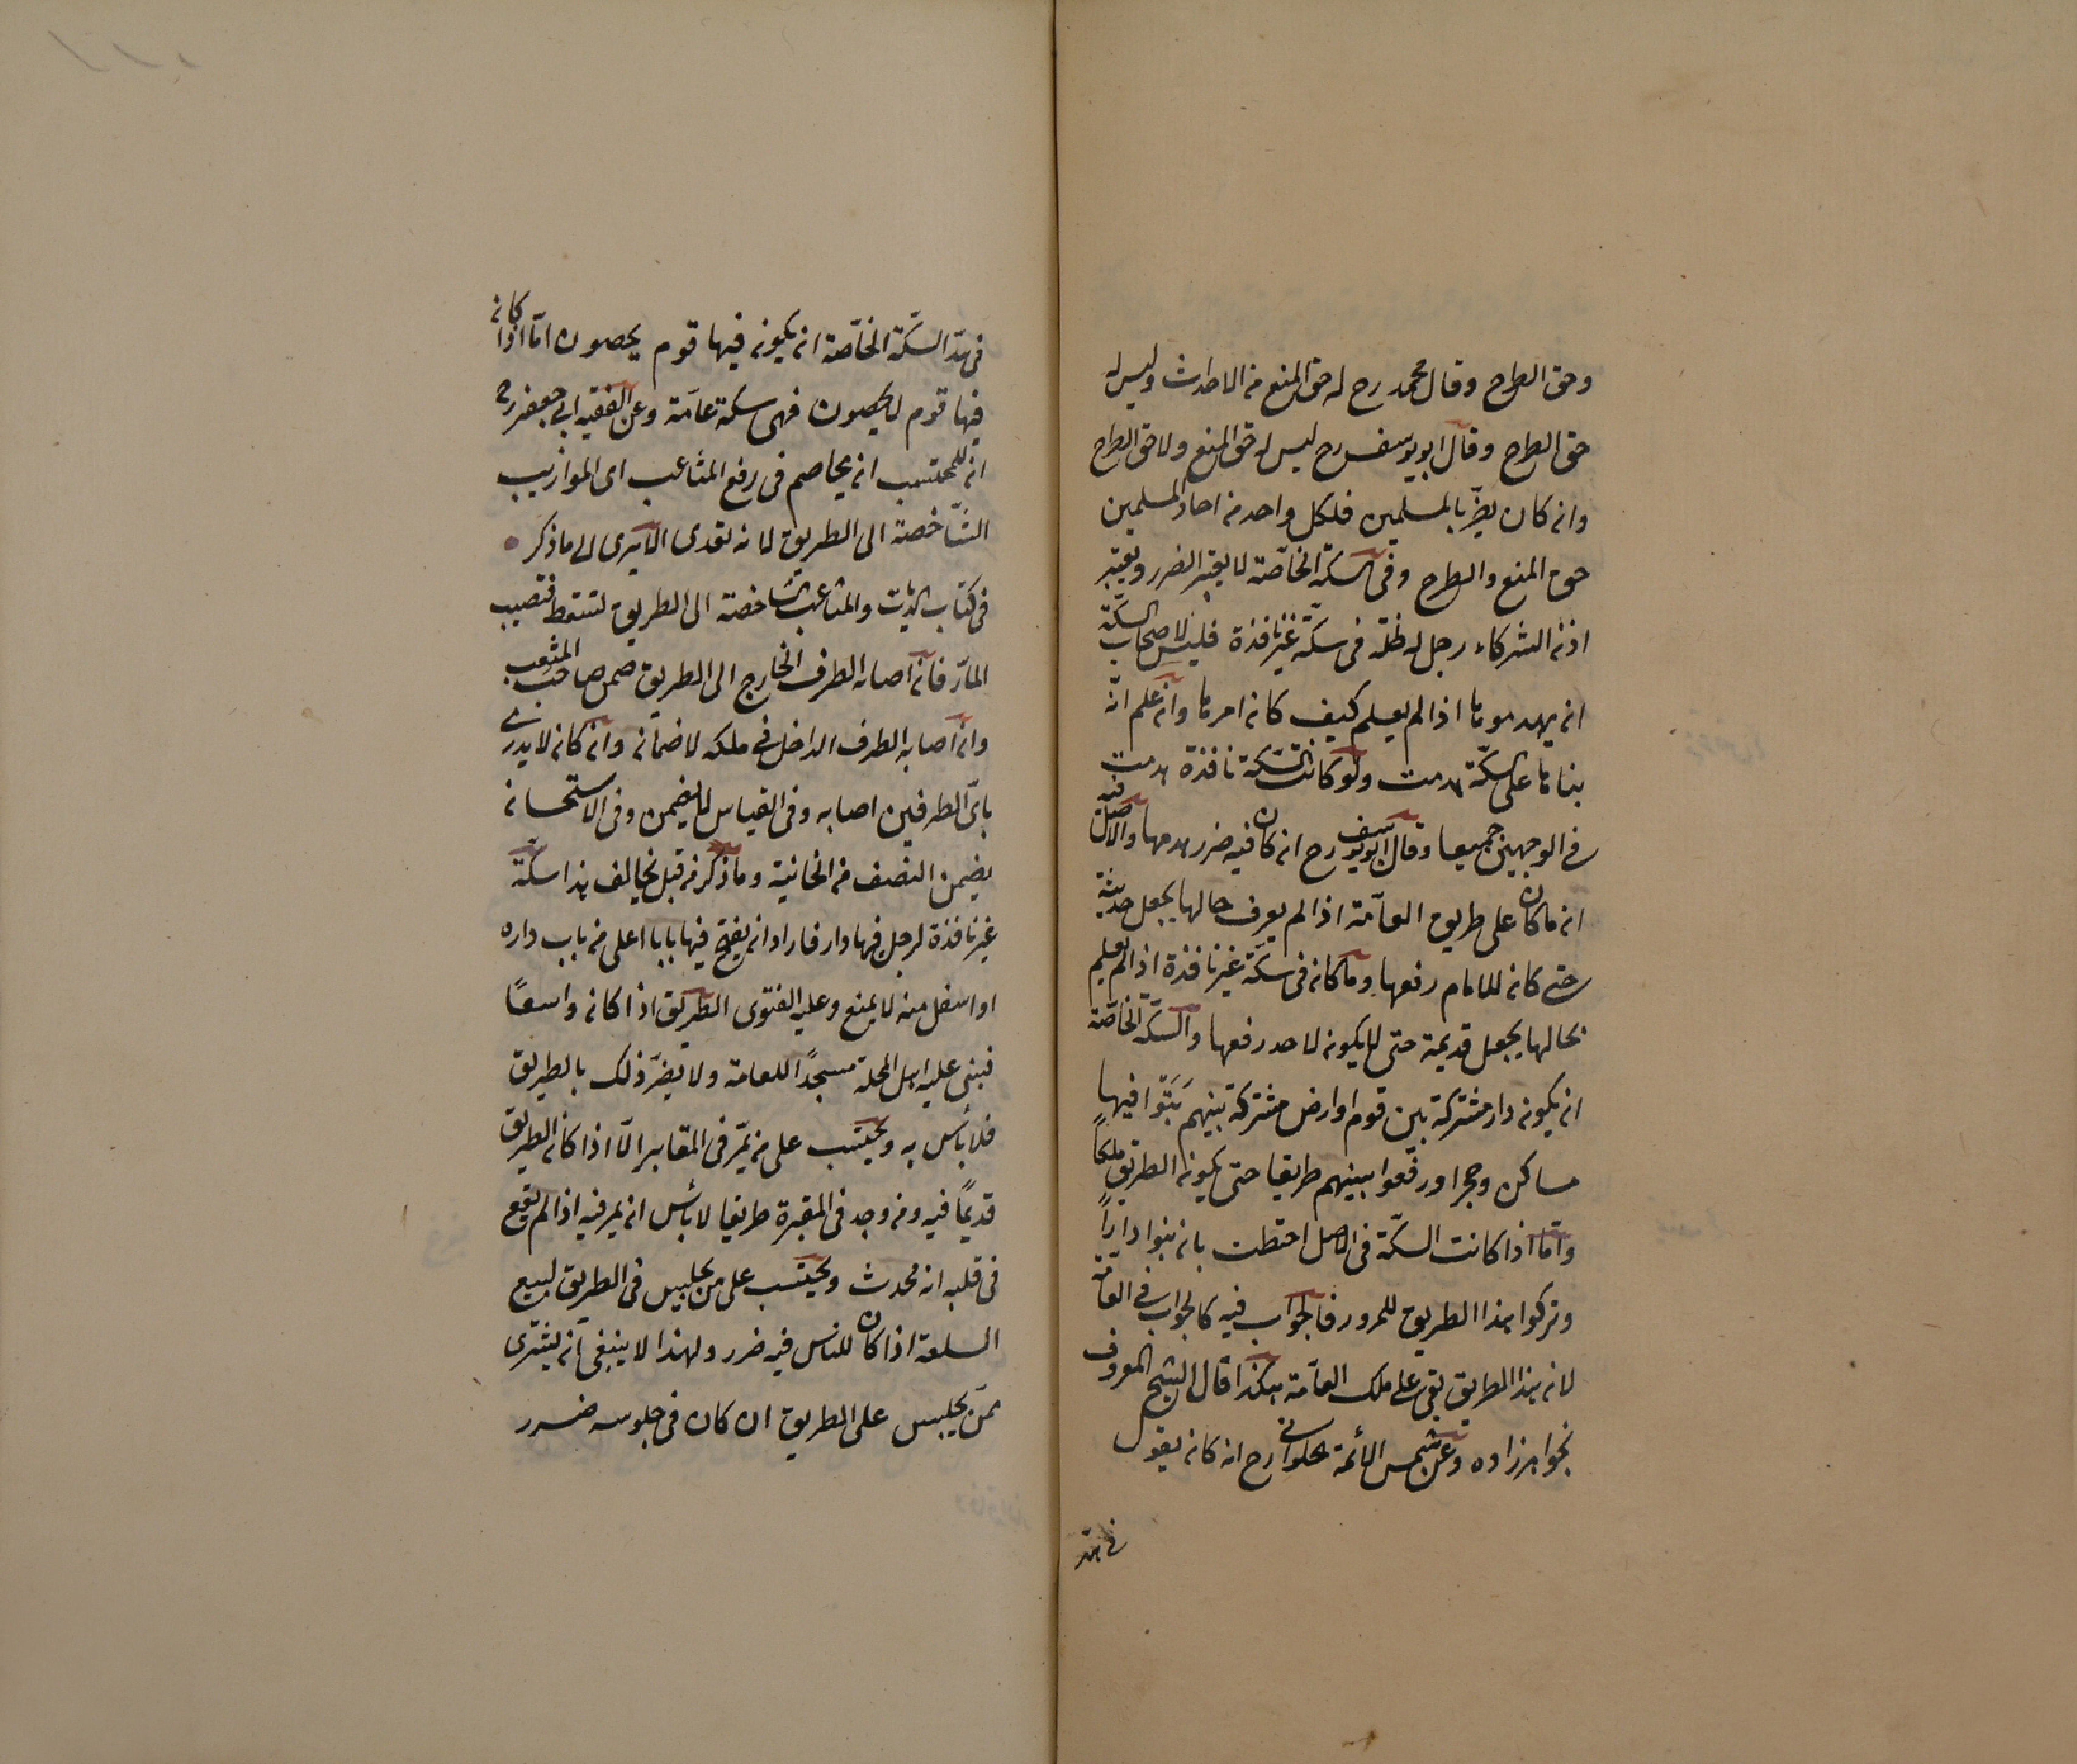 وحق الطرح وقال محمد رح له حق المنع من الاحداث وليس له
حق الطرح وقال ابو يوسف رح ليس له حق المنع ولا حق الطرح
وان كان يضرّ بالمسلمين فلكل واحد من احاد المسلمين
حق المنع والطرح وفى السكة الخاصّة لا يعتبر الضرر ويعتبر
اذن الشركاء رجل له ظلّة فى سكّة غير نافذة فليس لاصحاب السكّة
ان يهدموها اذا لم يعلم كيف كان امرها وان علم انّه
بناها على السكّة هدمت ولو كانت السّكة نافذة هدمت
فى الوجهين جميعا وقال ابو يوسف رح ان كان فيه ضرر هدمها والاصل فيه
ان ما كان على طريق العامّة اذا لم يعرف حالها يجعل حديثة
حتى كان للامام رفعها وما كان فى سكّة غير نافذة اذا لم يعلم
بحالها يجعل قديمة حتى لا يكون لاحد رفعها والسّكّة الخاصّة
ان يكون دار مشتركة بين قوم او ارض مشتركة بينهم بَنَوْا فيها
مساكن وحجرا ورفعوا بينهم طريقا حتى يكون الطريق ملكاً
وامّا اذا كانت السكّة فى الاصل احتطت بان بنوا داراً
وتركوا هذا الطريق للمرور فالجواب فيه كالجواب فى العامّة
لان هذا الطريق بقى على ملك العامّة هكذا قال الشيخ المعروف
بخواهرزاده وعن شمس الأئمة الحلوانى رح انه كان يقول
فى حد
فى حدّ السكّة الخاصّة ان يكون فيها قوم يحصون امّا اذا كان
فيها قوم لا يحصون فهى سكة عامّة وعن الفقيه ابى جعفر رح
ان للمحتسب ان يخاصم فى رفع المثاعب اى الموازيب
الشّاخصة الى الطريق لانه تعدى الا يرى الى ما ذكر
فى كتاب الديات والمثاعب الشاخصة الى الطريق لتسقط فتصيب
المارّ فان اصابه الطرف الخارج الى الطريق ضمن صاحب المثعب
وان اصابه الطرف الداخل فى ملكه لا ضمان وان كان لا يدرى
باىّ الطرفين اصابه وفى القياس لا يضمن وفى الاستحسان
يضمن النصف من الخانية وما ذكر من قبل يخالف هذا سكّة
غير نافذة لرجل فيها دار فاراد ان يفتح فيها بابا اعلى من باب داره
او اسفل منه لا يمنع وعليه الفتوى الطريق اذا كان واسعًا
فبنى عليه اهل المحلة مسجدًا للعامة ولا يضرّ ذلك بالطريق
فلا بأس به ويحتسب على من يمرّ فى المقابر الّا اذا كان الطريق
قديمًا فيه ومن وجد فى المقبرة طريقا لا بأس ان يمر فيه اذا لم يقع
فى قلبه انه محدث ويحتسب على من يجلس فى الطريق لبيع
السلعة اذا كان للناس فيه ضرر ولهذا لا ينبغى ان يشترى
ممّن يجلس على الطريق ان كان فى جلوسه ضرر